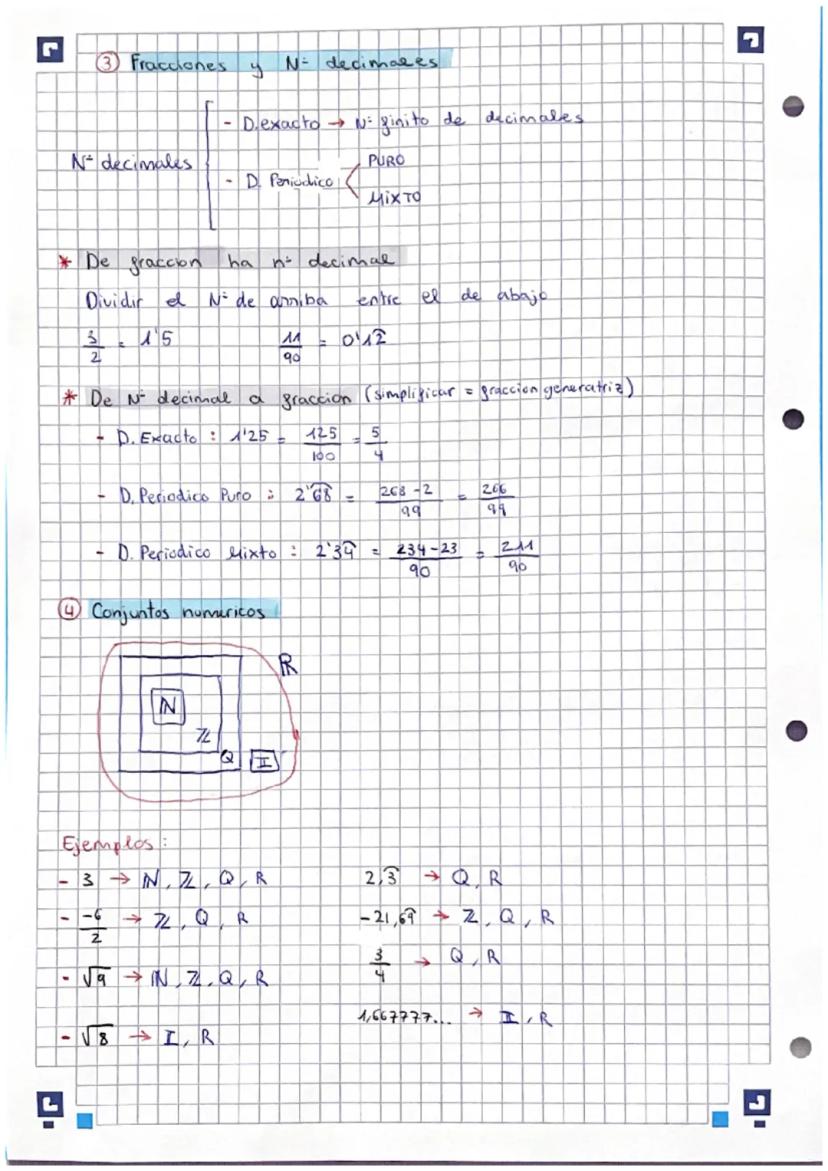 ③ Fracciones y Nº decimales
- D.exacto → Nº finito de decimales
Nº decimales
PURO
- D. Periodico
MIXTO
* De fraccion ha nº decimal
Dividir el Nº de arriba entre el de abajo
3/2 = 1'5 11/90 = 0'12̂
* De Nº decimal a fraccion (simplificar = fraccion generatriz)
- D. Exacto : 1'25 = 125/100 = 5/4
- D. Periodico Puro : 2'68̂ = 268-2/99 = 266/99
- D. Periodico Mixto : 2'34̂ = 234-23/90 = 211/90
④ Conjuntos numericos
R
N
Z
Q I
Ejemplos :
- 3 → N, Z, Q, R 2,3̂ → Q, R
- -6/2 → Z, Q, R -21,69̂ → Z, Q, R
- √9 → N, Z, Q, R 3/4 → Q, R
1,667777... → I, R
- √8 → I, R